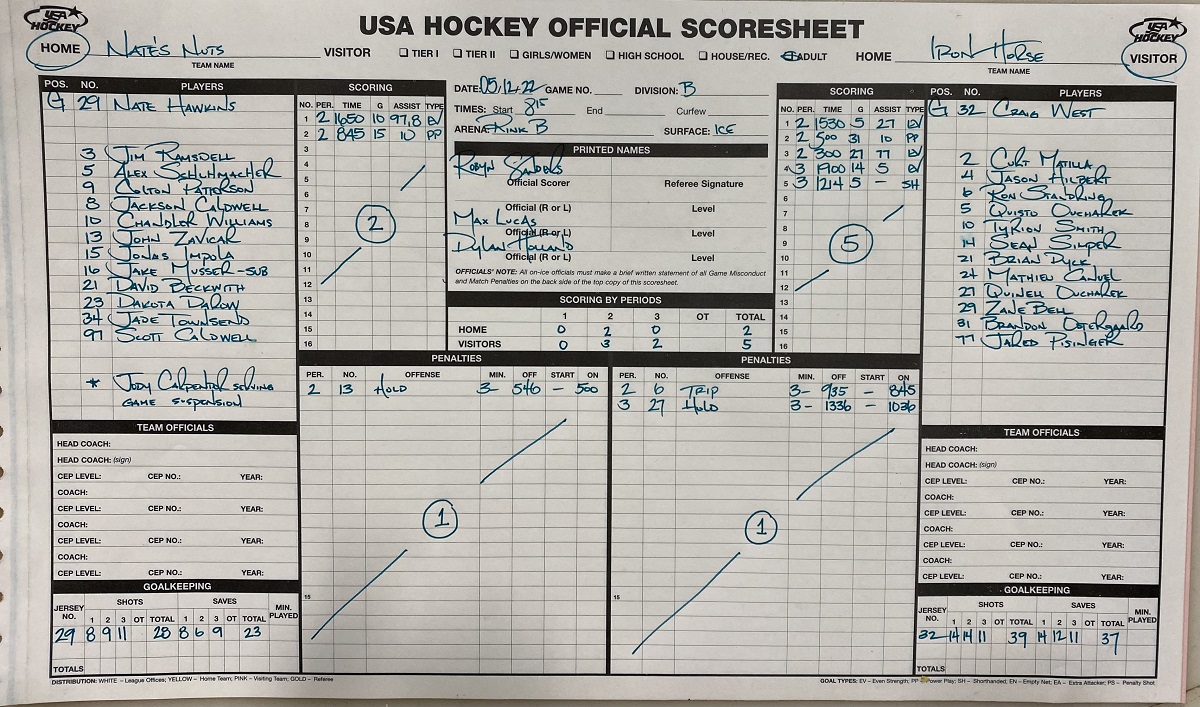 USA HOCKEY OFFICIAL SCORESHEET
USA HOCKEY
USA HOCKEY
HOME NATE'S NUTS
TEAM NAME
VISITOR TIER I TIER II GIRLS/WOMEN HIGH SCHOOL HOUSE/REC. ADULT HOME
IRON HORSE VISITOR
TEAM NAME
POS. NO. PLAYERS
G 29 NATE HAWKINS
3 JIM RAMSDELL
5 ALEX SCHUHMACHER
9 COLTON PATTERSON
8 JACKSON CALDWELL
10 CHANDLER WILLIAMS
13 JOHN ZAVICAR
15 JONAS IMPOLA
16 JAKE MUSSER-SUB
21 DAVID BECKWITH
23 DAKOTA DAROW
34 JADE TOWNSEND
97 SCOTT CALDWELL
* JODY CARPENTER SERVING
GAME SUSPENSION
SCORING
NO. PER. TIME G ASSIST TYPE
1 2 1650 10 97,8 EV
2 2 845 15 10 PP
3
4
5
6
7
8
9
10
11
12
13
14
15
16
2
DATE: 05.12.22 GAME NO. DIVISION: B
TIMES: Start 815 End Curfew
ARENA: RINK B SURFACE: ICE
PRINTED NAMES
ROBYN SANDERS
Official Scorer Referee Signature
Official (R or L) Level
MAX LUCAS
Official (R or L) Level
DYLAN HOLLAND
Official (R or L) Level
OFFICIALS' NOTE: All on-ice officials must make a brief written statement of all Game Misconduct
and Match Penalties on the back side of the top copy of this scoresheet.
SCORING BY PERIODS
1 2 3 OT TOTAL
HOME 0 2 0 2
VISITORS 0 3 2 5
SCORING
NO. PER. TIME G ASSIST TYPE
1 2 1530 5 27 EV
2 2 500 31 10 PP
3 2 300 27 77 EV
4 3 1900 14 5 EV
5 3 1214 5 - SH
6
7
8
9
10
11
12
13
14
15
16
5
POS. NO. PLAYERS
G 32 CRAIG WEST
2 CURT MATILLA
4 JASON HILBERT
6 RON STANDRING
5 QUISTO OUCHAREK
10 TYRION SMITH
14 SEAN SIMPER
21 BRIAN DYCK
24 MATHIEU CANUEL
27 QUINELL OUCHAREK
29 ZANE BELL
31 BRANDON OSTERGAARD
77 JARED PISINGER
PENALTIES
PER. NO. OFFENSE MIN. OFF START ON
2 13 HOLD 3- 546 - 500
15
1
PENALTIES
PER. NO. OFFENSE MIN. OFF START ON
2 6 TRIP 3- 935 - 845
3 27 HOLD 3- 1336 - 1036
15
1
TEAM OFFICIALS
HEAD COACH:
HEAD COACH: (sign)
CEP LEVEL: CEP NO.: YEAR:
COACH:
CEP LEVEL: CEP NO.: YEAR:
COACH:
CEP LEVEL: CEP NO.: YEAR:
COACH:
CEP LEVEL: CEP NO.: YEAR:
GOALKEEPING
JERSEY NO. SHOTS SAVES MIN. PLAYED
1 2 3 OT TOTAL 1 2 3 OT TOTAL
29 8 9 11 28 8 6 9 23
TOTALS
TEAM OFFICIALS
HEAD COACH:
HEAD COACH: (sign)
CEP LEVEL: CEP NO.: YEAR:
COACH:
CEP LEVEL: CEP NO.: YEAR:
COACH:
CEP LEVEL: CEP NO.: YEAR:
COACH:
CEP LEVEL: CEP NO.: YEAR:
GOALKEEPING
JERSEY NO. SHOTS SAVES MIN. PLAYED
1 2 3 OT TOTAL 1 2 3 OT TOTAL
32 14 14 11 39 14 12 11 37
TOTALS
DISTRIBUTION: WHITE – League Offices; YELLOW – Home Team; PINK – Visiting Team; GOLD – Referee
GOAL TYPES: EV – Even Strength; PP – Power Play; SH – Shorthanded, EN – Empty Net; EA – Extra Attacker; PS – Penalty Shot